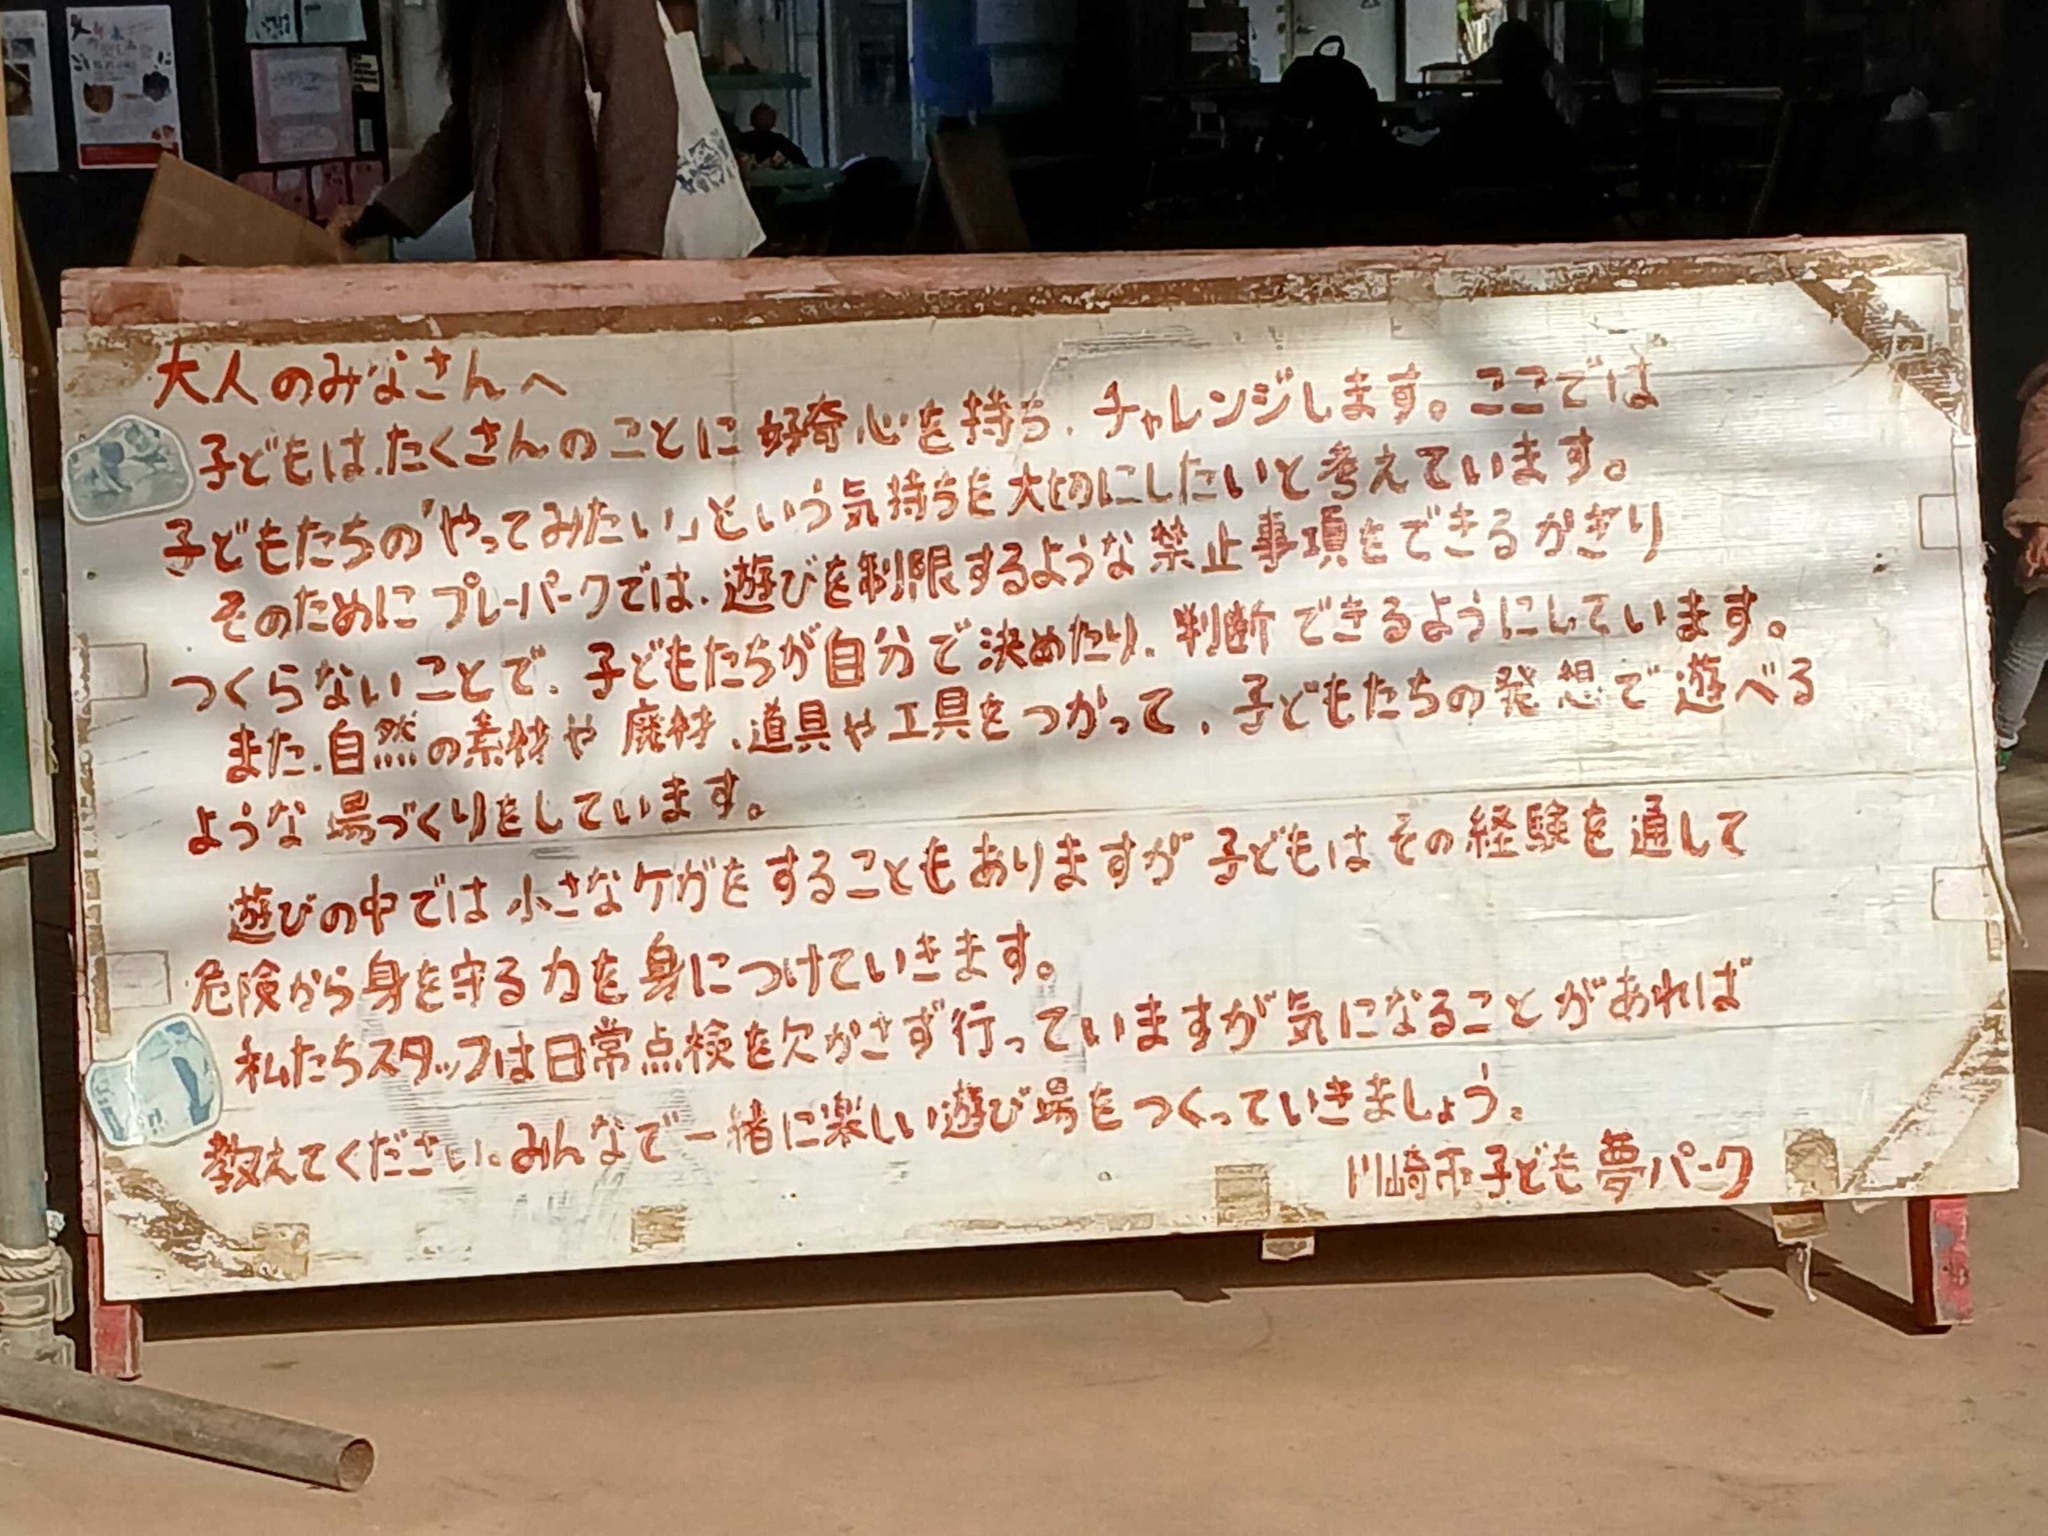 大人のみなさんへ
子どもは、たくさんのことに好奇心を持ち、チャレンジします。ここでは
子どもたちの「やってみたい」という気持ちを大切にしたいと考えています。
そのためにプレーパークでは、遊びを制限するような禁止事項をできるかぎり
つくらないことで、子どもたちが自分で決めたり、判断できるようにしています。
また、自然の素材や廃材、道具や工具をつかって、子どもたちの発想で遊べる
ような場づくりをしています。
遊びの中では小さなケガをすることもありますが子どもはその経験を通して
危険から身を守る力を身につけていきます。
私たちスタッフは日常点検を欠かさず行っていますが気になることがあれば
教えてください。みんなで一緒に楽しい遊び場をつくっていきましょう。
川崎市子ども夢パーク